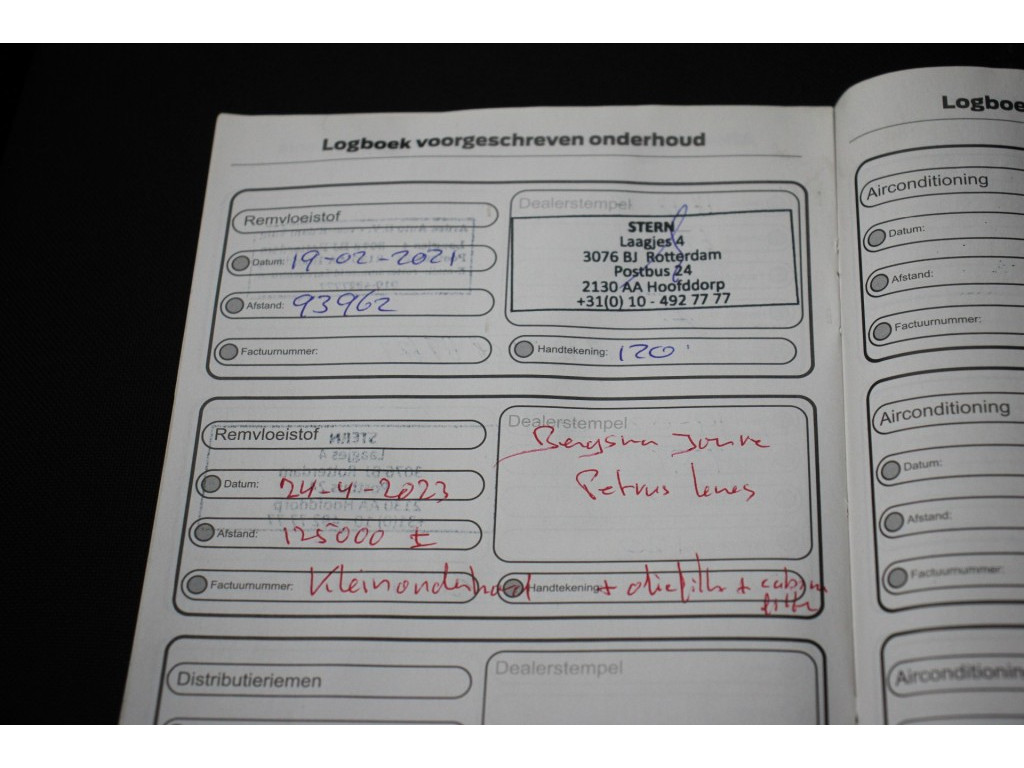 Logboek voorgeschreven onderhoud
Remvloeistof
Datum: 19-02-2021
Afstand: 93962
Factuurnummer:
Dealerstempel
STERN
Laagjes 4
3076 BJ Rotterdam
Postbus 24
2130 AA Hoofddorp
+31(0) 10 - 492 77 77
Handtekening: 120
Remvloeistof
Datum: 24-4-2023
Afstand: 125000 ±
Factuurnummer: Kleinonderhoud
Dealerstempel
Bergsma
Petrus
Handtekening: + oliefilter + cabin
filter
Distributieriemen
Dealerstempel
Logboe
Airconditioning
Datum:
Afstand:
Factuurnummer:
Airconditioning
Datum:
Afstand:
Factuurnummer:
Airconditioning